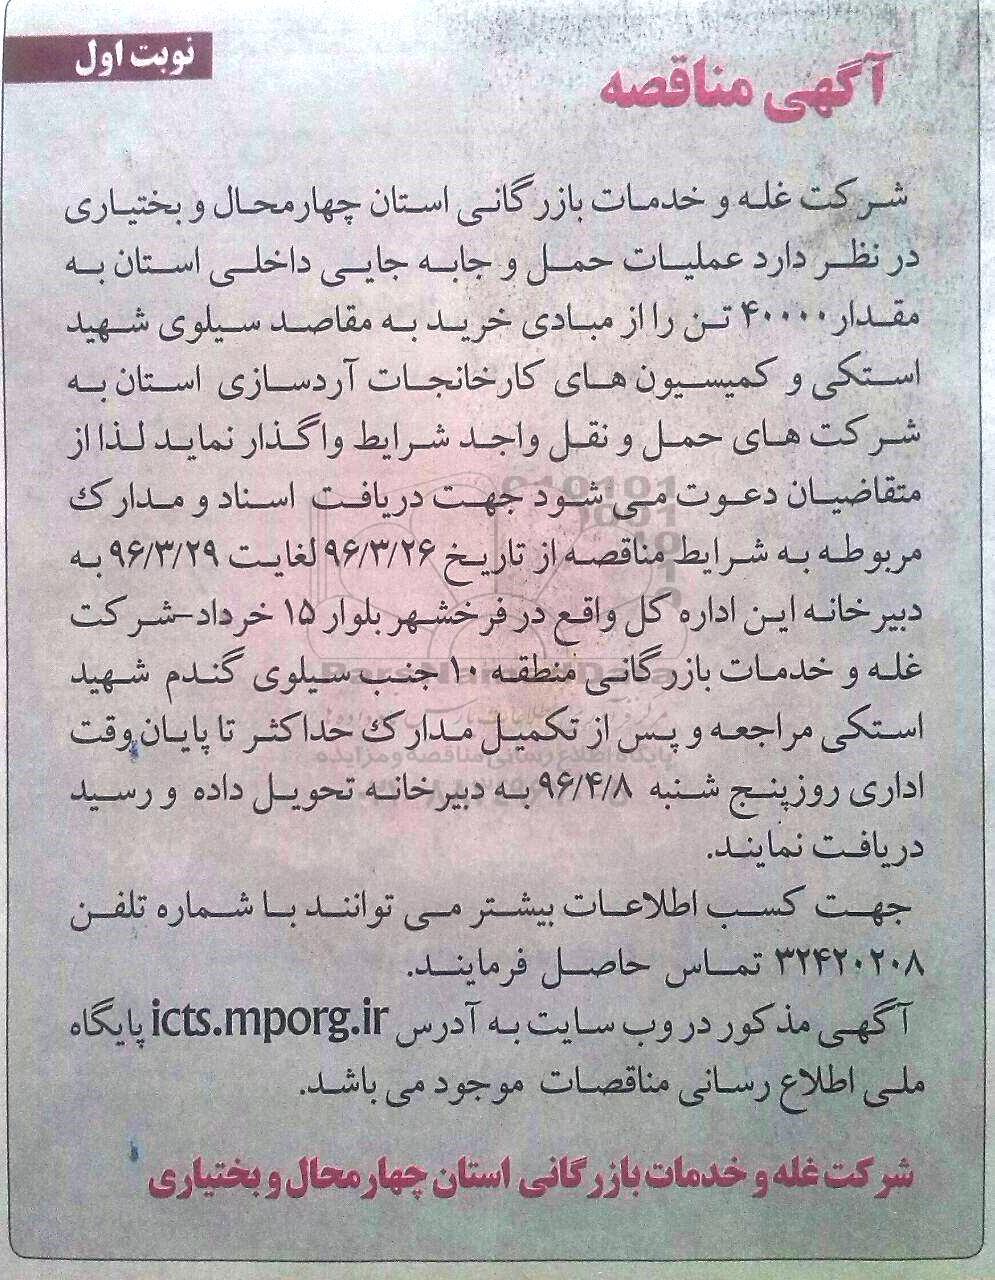 نوبت اول
آگهی مناقصه
شرکت غله و خدمات بازرگانی استان چهارمحال و بختیاری
در نظر دارد عملیات حمل و جابه جایی داخلی استان به
مقدار ۴۰۰۰۰ تن را از مبادی خرید به مقاصد سیلوی شهید
استکی و کمیسیون های کارخانجات آردسازی استان به
شرکت های حمل و نقل واجد شرایط واگذار نماید لذا از
متقاضیان دعوت می شود جهت دریافت اسناد و مدارک
مربوطه به شرایط مناقصه از تاریخ ۹۶/۳/۲۶ لغایت ۹۶/۳/۲۹ به
دبیرخانه این اداره کل واقع در فرخشهر بلوار ۱۵ خرداد-شرکت
غله و خدمات بازرگانی منطقه ۱۰ جنب سیلوی گندم شهید
استکی مراجعه و پس از تکمیل مدارک حداکثر تا پایان وقت
اداری روز پنج شنبه ۹۶/۴/۸ به دبیرخانه تحویل داده و رسید
دریافت نمایند.
جهت کسب اطلاعات بیشتر می توانند با شماره تلفن
۳۲۴۲۰۲۰۸ تماس حاصل فرمایند.
آگهی مذکور در وب سایت به آدرس icts.mporg.ir پایگاه
ملی اطلاع رسانی مناقصات موجود می باشد.
شرکت غله و خدمات بازرگانی استان چهارمحال و بختیاری
پایگاه اطلاع رسانی مناقصه و مزایده